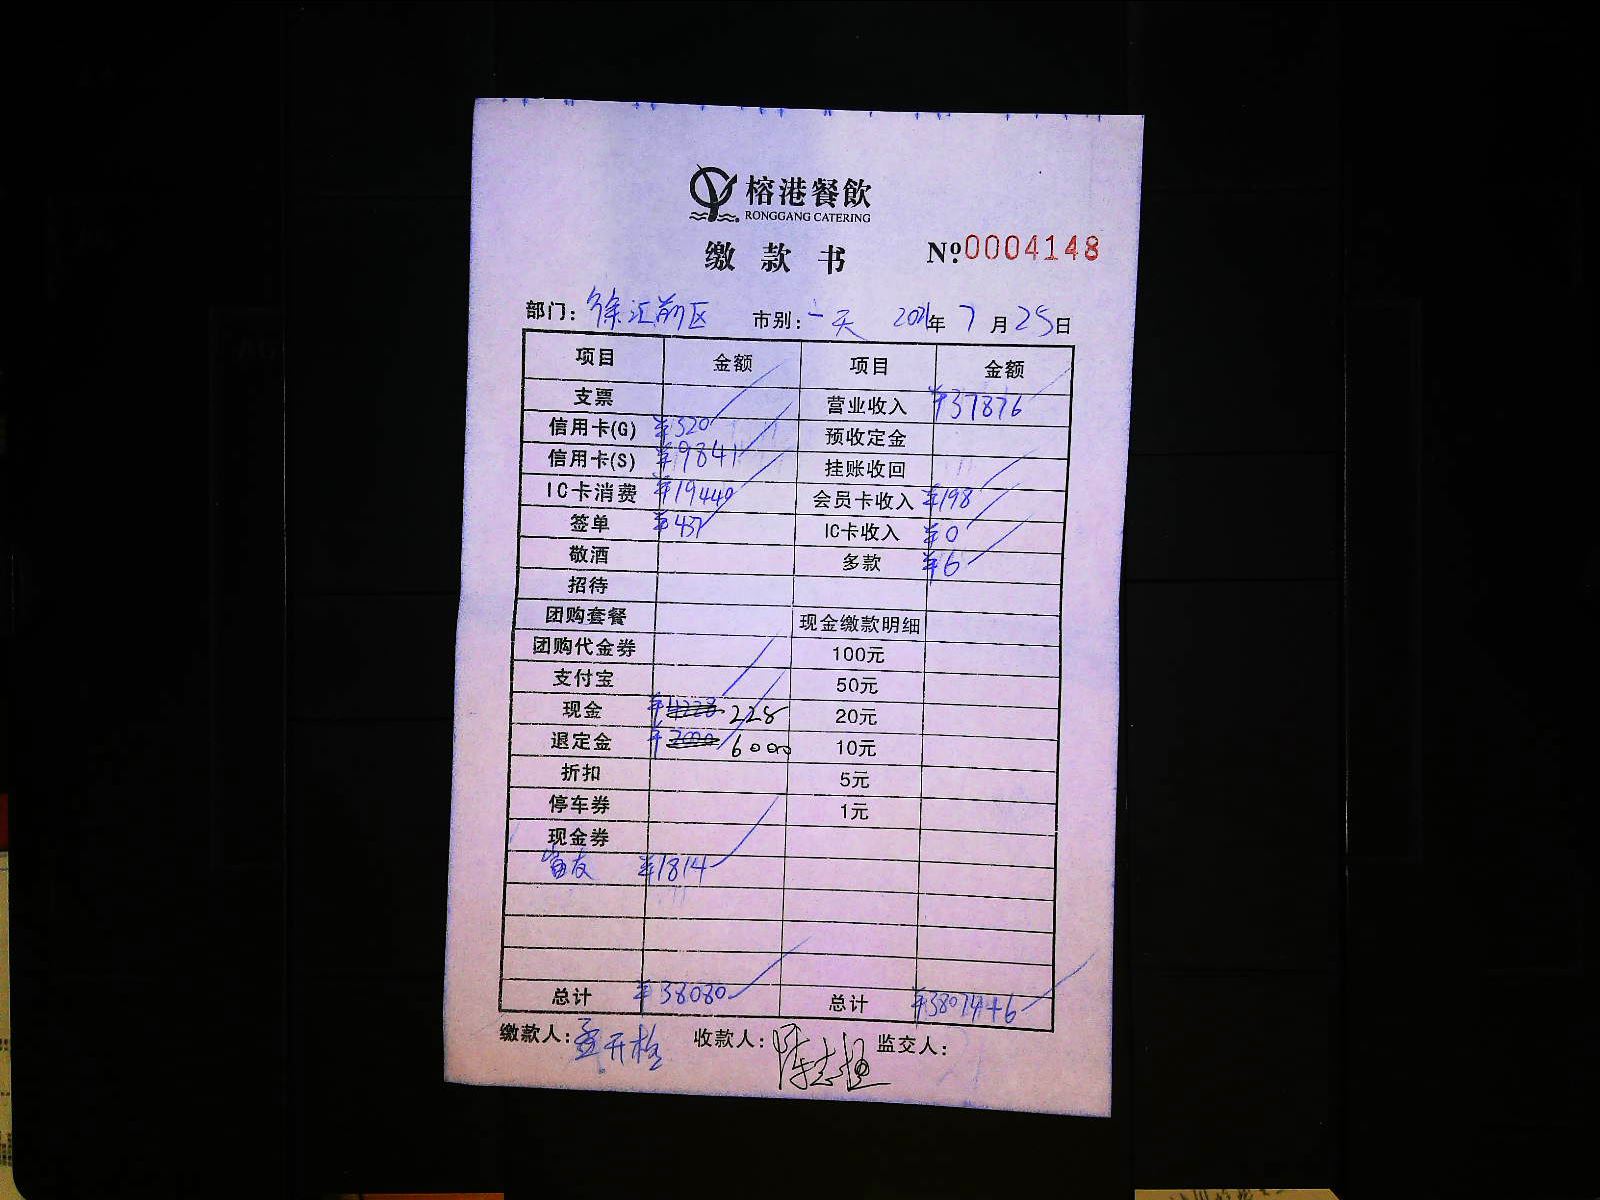 榕港餐飲
RONGGANG CATERING
缴款书 №0004148
部门: 徐汇前区 市别: 一天 2021年 7月25日
项目 金额 项目 金额
支票 营业收入 ¥37876
信用卡(G) ¥320 预收定金
信用卡(S) ¥9841 挂账收回
IC卡消费 ¥19440 会员卡收入 ¥198
签单 ¥437 IC卡收入 ¥0
敬酒 多款 ¥6
招待
团购套餐 现金缴款明细
团购代金券 100元
支付宝 50元
现金 ¥4228 228 20元
退定金 ¥2000 6000 10元
折扣 5元
停车券 1元
现金券
¥1814
总计 ¥38080 总计 ¥38074+6
缴款人: 孟开 收款人: 陈志 监交人: